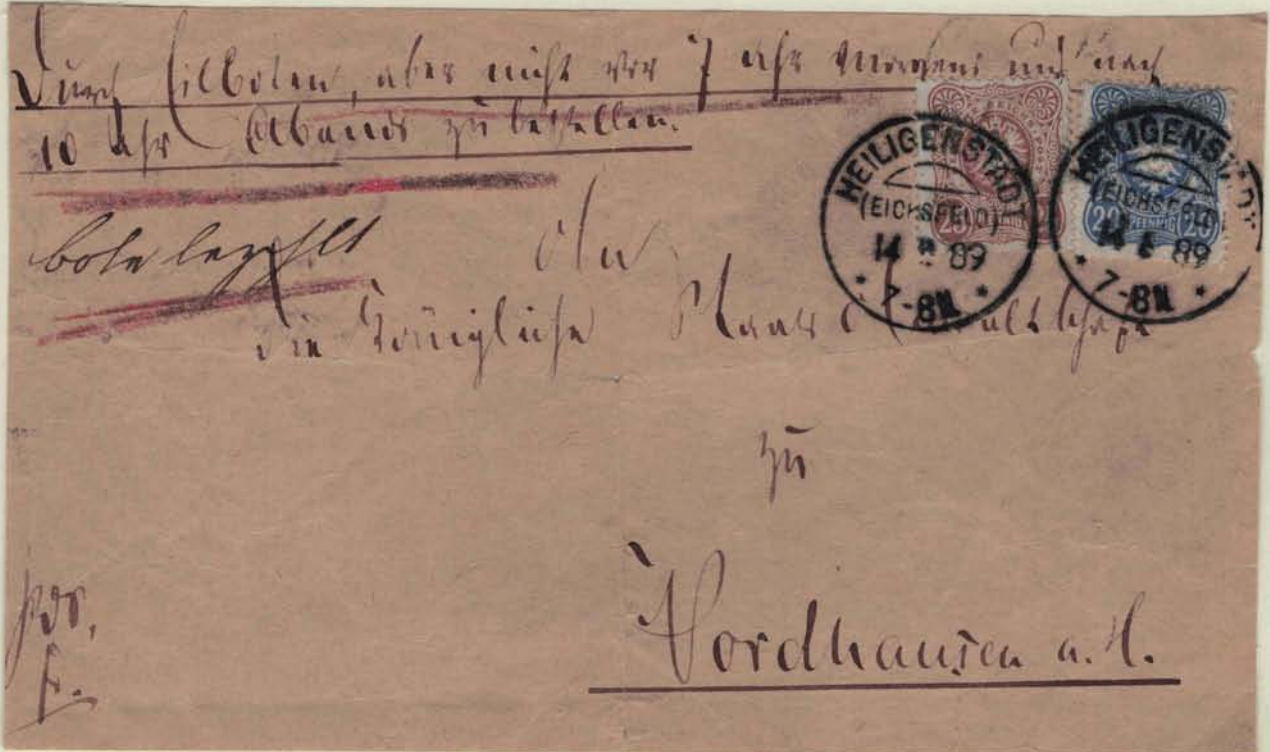 Durch Eilboten, aber nicht vor 7 Uhr Morgens und nach
10 Uhr Abends zu bestellen.
bote bezahlt
An
die Königliche Staatsanwaltschaft
zu
Nordhausen a. H.
HEILIGENSTADT
(EICHSFELD)
14 89
* 7-8N *
25
HEILIGENSTADT
(EICHSFELD)
14 89
* 7-8N *
20 PFENNIG 20